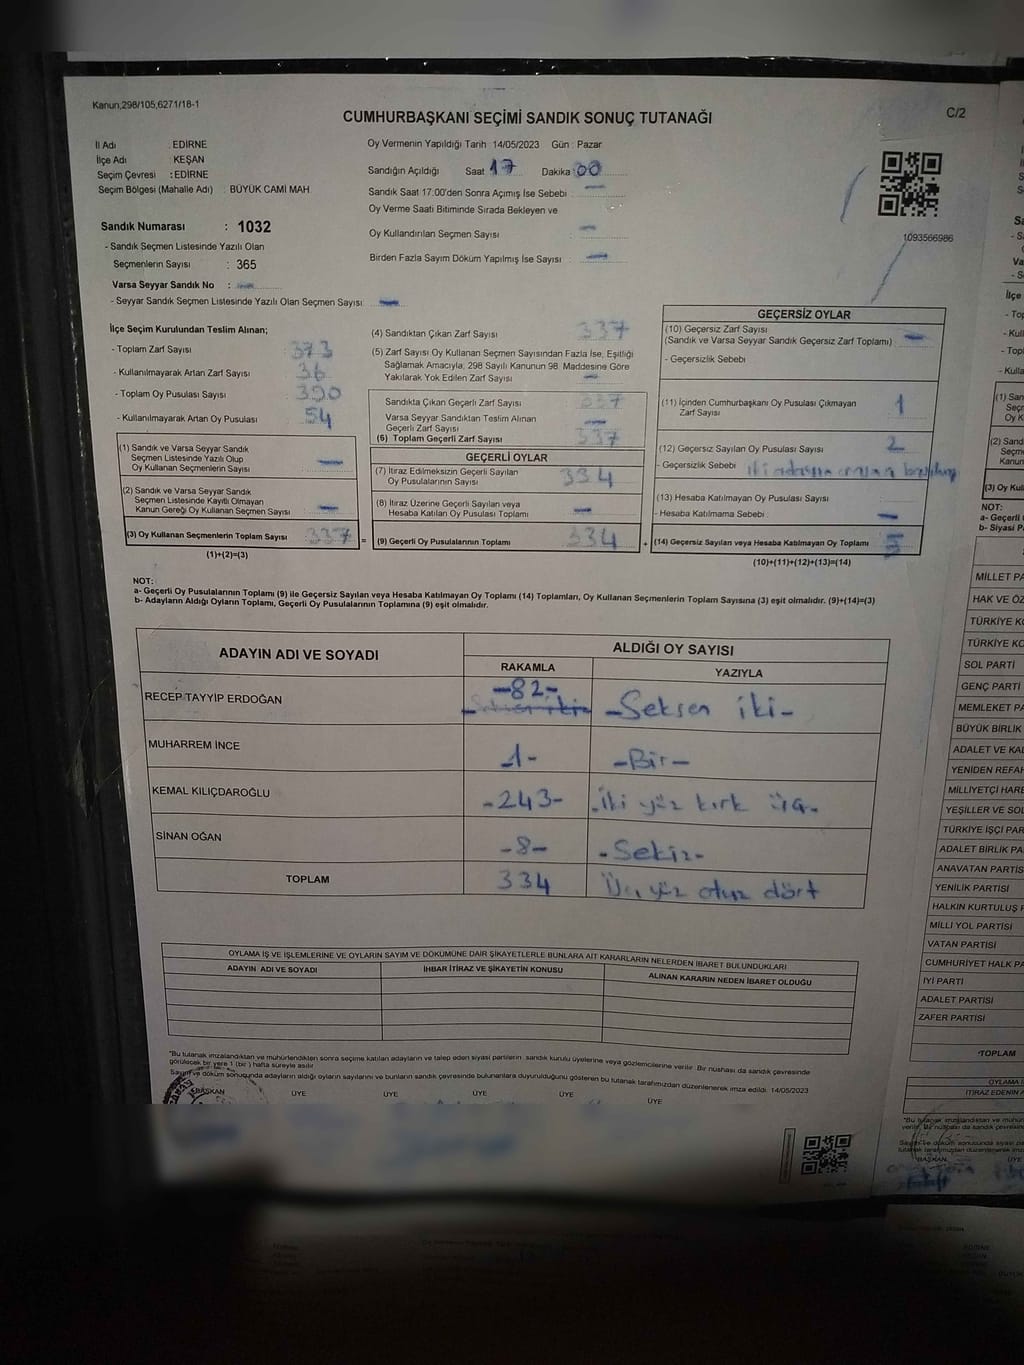 Kanun,298/105,6271/18-1
C/2
CUMHURBAŞKANI SEÇİMİ SANDIK SONUÇ TUTANAĞI
İl Adı : EDİRNE
İlçe Adı : KEŞAN
Seçim Çevresi : EDİRNE
Seçim Bölgesi (Mahalle Adı) : BÜYÜK CAMİ MAH.
Sandık Numarası : 1032
- Sandık Seçmen Listesinde Yazılı Olan
Seçmenlerin Sayısı : 365
Varsa Seyyar Sandık No : -
- Seyyar Sandık Seçmen Listesinde Yazılı Olan Seçmen Sayısı: -
Oy Vermenin Yapıldığı Tarih 14/05/2023 Gün : Pazar
Sandığın Açıldığı Saat 17 Dakika 00
Sandık Saat 17:00'den Sonra Açımış İse Sebebi : -
Oy Verme Saati Bitiminde Sırada Bekleyen ve
Oy Kullandırılan Seçmen Sayısı : -
Birden Fazla Sayım Döküm Yapılmış İse Sayısı : -
1093566986
İlçe Seçim Kurulundan Teslim Alınan;
- Toplam Zarf Sayısı : 373
- Kullanılmayarak Artan Zarf Sayısı : 36
- Toplam Oy Pusulası Sayısı : 390
- Kullanılmayarak Artan Oy Pusulası : 54
(1) Sandık ve Varsa Seyyar Sandık
Seçmen Listesinde Yazılı Olup
Oy Kullanan Seçmenlerin Sayısı : -
(2) Sandık ve Varsa Seyyar Sandık
Seçmen Listesinde Kayıtlı Olmayan
Kanun Gereği Oy Kullanan Seçmen Sayısı : -
(3) Oy Kullanan Seçmenlerin Toplam Sayısı : 337 =
(1)+(2)=(3)
(4) Sandıktan Çıkan Zarf Sayısı : 337
(5) Zarf Sayısı Oy Kullanan Seçmen Sayısından Fazla İse, Eşitliği
Sağlamak Amacıyla; 298 Sayılı Kanunun 98. Maddesine Göre
Yakılarak Yok Edilen Zarf Sayısı : -
Sandıkta Çıkan Geçerli Zarf Sayısı : 337
Varsa Seyyar Sandıktan Teslim Alınan
Geçerli Zarf Sayısı : -
(6) Toplam Geçerli Zarf Sayısı : 337
GEÇERLİ OYLAR
(7) İtiraz Edilmeksizin Geçerli Sayılan
Oy Pusulalarının Sayısı : 334
(8) İtiraz Üzerine Geçerli Sayılan veya
Hesaba Katılan Oy Pusulası Toplamı : -
(9) Geçerli Oy Pusulalarının Toplamı : 334 +
GEÇERSİZ OYLAR
(10) Geçersiz Zarf Sayısı
(Sandık ve Varsa Seyyar Sandık Geçersiz Zarf Toplamı) : -
- Geçersizlik Sebebi :
(11) İçinden Cumhurbaşkanı Oy Pusulası Çıkmayan
Zarf Sayısı : 1
(12) Geçersiz Sayılan Oy Pusulası Sayısı : 2
- Geçersizlik Sebebi :
(13) Hesaba Katılmayan Oy Pusulası Sayısı
- Hesaba Katılmama Sebebi : -
(14) Geçersiz Sayılan veya Hesaba Katılmayan Oy Toplamı :
(10)+(11)+(12)+(13)=(14)
NOT:
a- Geçerli Oy Pusulalarının Toplamı (9) ile Geçersiz Sayılan veya Hesaba Katılmayan Oy Toplamı (14) Toplamları, Oy Kullanan Seçmenlerin Toplam Sayısına (3) eşit olmalıdır. (9)+(14)=(3)
b- Adayların Aldığı Oyların Toplamı, Geçerli Oy Pusulalarının Toplamına (9) eşit olmalıdır.
ADAYIN ADI VE SOYADI ALDIĞI OY SAYISI
RAKAMLA YAZIYLA
RECEP TAYYİP ERDOĞAN -82- -Seksen iki-
MUHARREM İNCE 1- -Bir-
KEMAL KILIÇDAROĞLU -243- -İki yüz kırk üç-
SİNAN OĞAN -8- -Sekiz-
TOPLAM 334 Üç yüz otuz dört
OYLAMA İŞ VE İŞLEMLERİNE VE OYLARIN SAYIM VE DÖKÜMÜNE DAİR ŞİKAYETLERLE BUNLARA AİT KARARLARIN NELERDEN İBARET BULUNDUKLARI
ADAYIN ADI VE SOYADI İHBAR İTİRAZ VE ŞİKAYETİN KONUSU ALINAN KARARIN NEDEN İBARET OLDUĞU
*Bu tutanak imzalandıktan ve mühürlendikten sonra seçime katılan adayların ve talep eden siyasi partilerin sandık kurulu üyelerine veya gözlemcilerine verilir. Bir nüshası da sandık çevresinde
görülecek bir yere 1 (bir) hafta süreyle asılır.
Sayım ve döküm sonucunda adayların aldığı oyların sayılarını ve bunların sandık çevresinde bulunanlara duyurulduğunu gösteren bu tutanak tarafımızdan düzenlenerek imza edildi. 14/05/2023
BAŞKAN ÜYE ÜYE ÜYE ÜYE ÜYE
(3) Oy Kul
NOT:
a- Geçerli
b- Siyasi P
MİLLET PA
HAK VE ÖZ
TÜRKİYE KO
TÜRKİYE KO
SOL PARTİ
GENÇ PARTİ
MEMLEKET PA
BÜYÜK BİRLİK
ADALET VE KAL
YENİDEN REFAH
MİLLİYETÇİ HARE
YEŞİLLER VE SOL
TÜRKİYE İŞÇİ PAR
ADALET BİRLİK PA
ANAVATAN PARTİS
YENİLİK PARTİSİ
HALKIN KURTULUŞ P
MİLLİ YOL PARTİSİ
VATAN PARTİSİ
CUMHURİYET HALK PA
İYİ PARTİ
ADALET PARTİSİ
ZAFER PARTİSİ
*TOPLAM
OYLAMA İ
İTİRAZ EDENİN A
BAŞKAN ÜYE